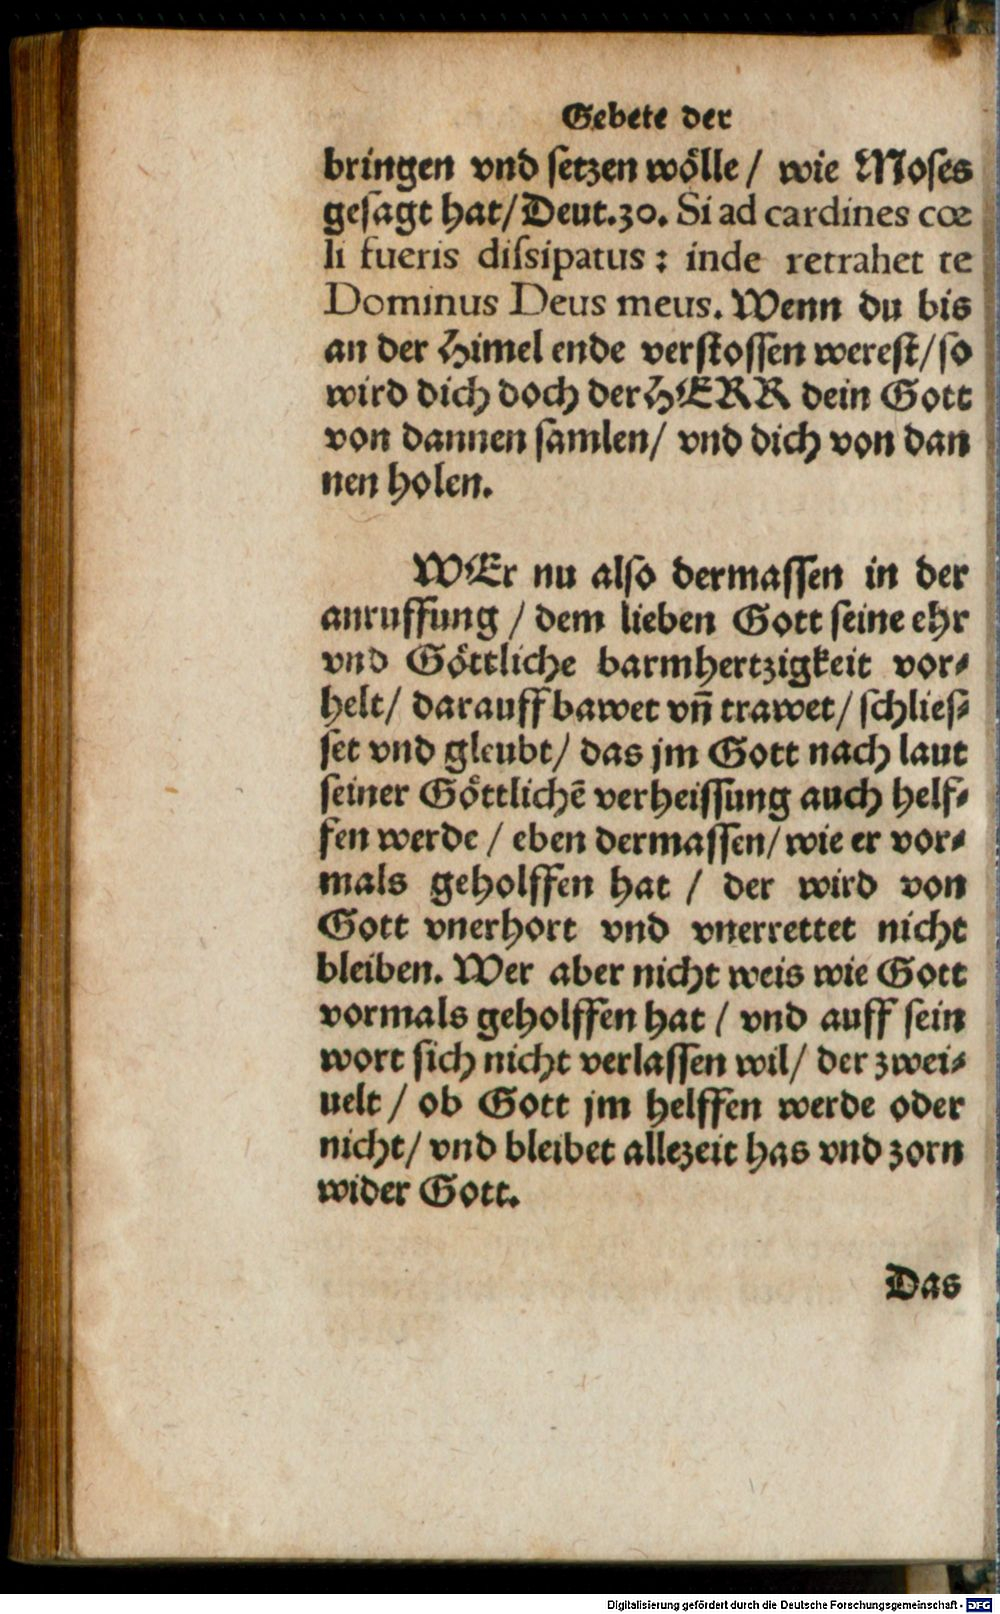 Gebete der
bringen vnd ſetzen woͤlle / wie Moſes
geſagt hat/ Deut.30. Si ad cardines cœ
li fueris diſsipatus: inde retrahet te
Dominus Deus meus. Wenn du bis
an der Himel ende verſtoſſen wereſt/ ſo
wird dich doch der HERR dein Gott
von dannen ſamlen/ vnd dich von dan
nen holen.
WEr nu alſo dermaſſen in der
anruffung / dem lieben Gott ſeine ehr
vnd Goͤttliche barmhertzigkeit vor⸗
helt/ darauff bawet vn̄ trawet/ ſchlieſ⸗
ſet vnd gleubt/ das jm Gott nach laut
ſeiner Goͤttlichē verheiſſung auch helf⸗
fen werde / eben dermaſſen/ wie er vor⸗
mals geholffen hat / der wird von
Gott vnerhort vnd vnerrettet nicht
bleiben. Wer aber nicht weis wie Gott
vormals geholffen hat / vnd auff ſein
wort ſich nicht verlaſſen wil/ der zwei⸗
uelt / ob Gott jm helffen werde oder
nicht/ vnd bleibet allezeit has vnd zorn
wider Gott.
Das
Digitalisierung gefördert durch die Deutsche Forschungsgemeinschaft - DFG